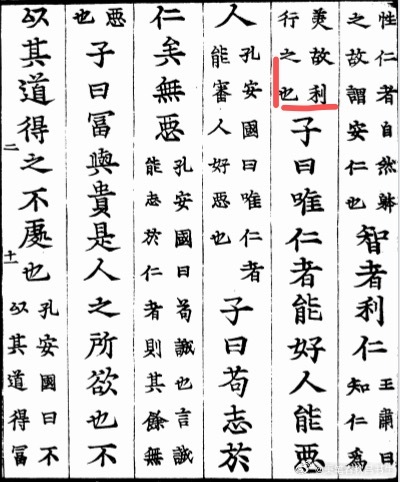 性仁者自然躰
之故謂安仁也
智者利仁
王肅曰
知仁爲
美故利
行之也
子曰唯仁者能好人能惡
人
孔安國曰唯仁者
能審人好惡也
子曰苟志於
仁矣無惡
孔安國曰苟誠也言誠
能志於仁者則其餘無
惡
也
子曰冨與貴是人之所欲也不
以其道得之不處也
孔安國曰不
以其道得冨
二
十一